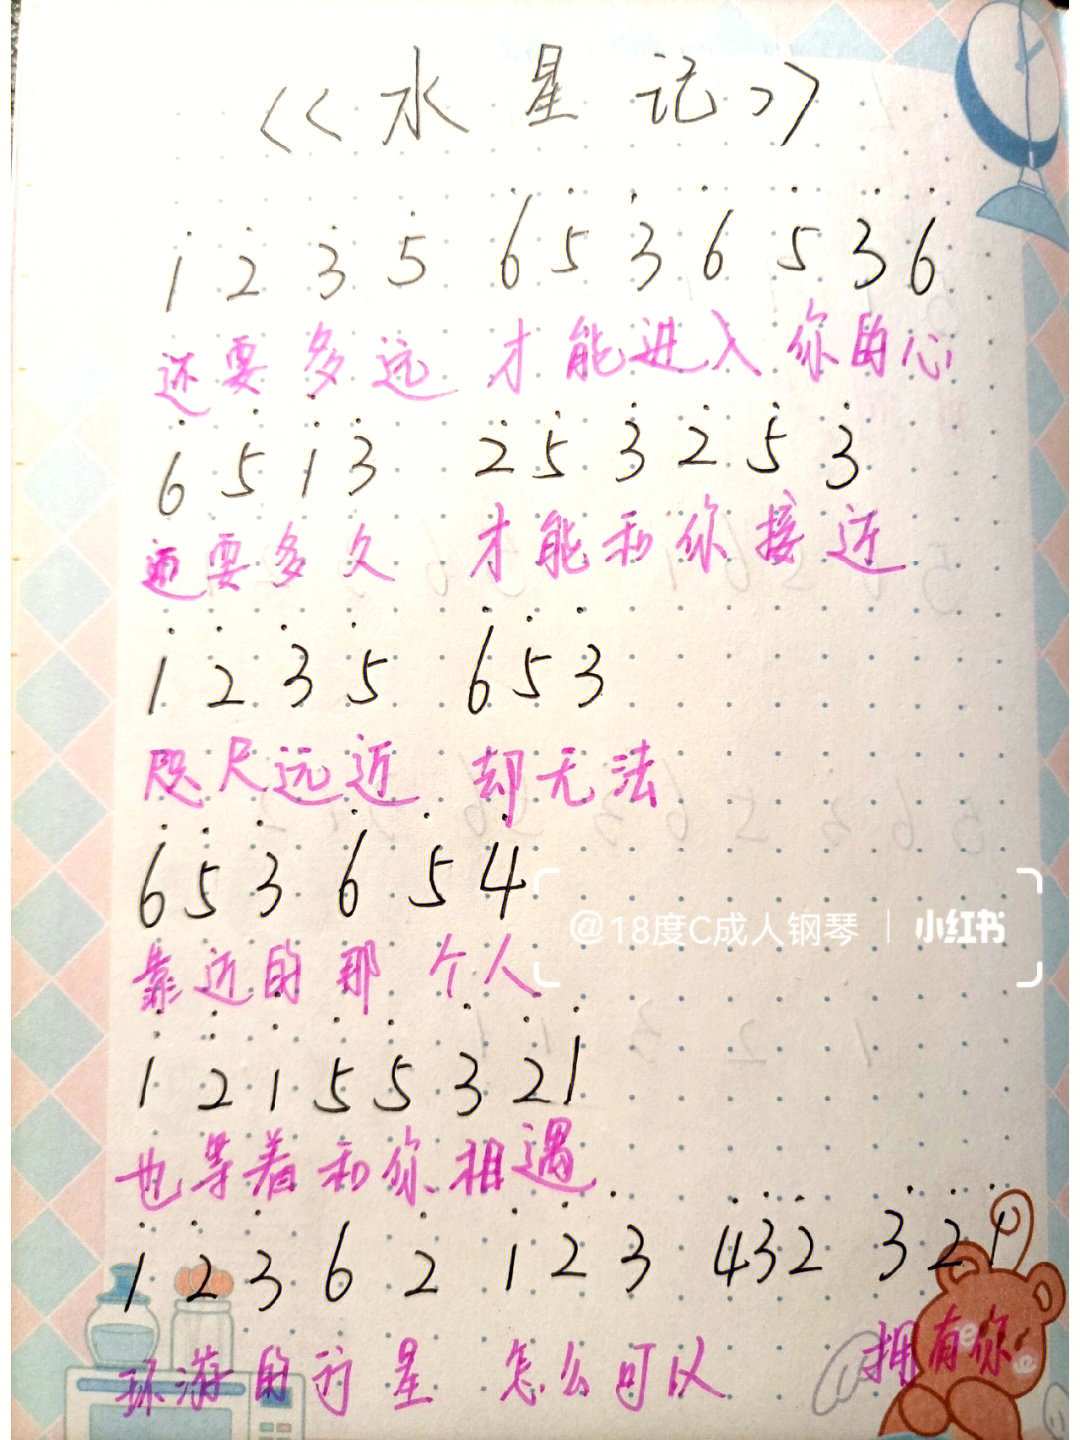 《水星记》
1̇ 2̇ 3̇ 5̇ 6̇ 5̇ 3̇ 6̇ 5̇ 3̇ 6̇
还要多远 才能进入你的心
6̇ 5̇ 1̇ 3̇ 2̇ 5̇ 3̇ 2̇ 5̇ 3̇
还要多久 才能和你接近
1̇ 2̇ 3̇ 5̇ 6̇ 5̇ 3̇
咫尺远近 却无法
6̇ 5̇ 3̇ 6̇ 5̇ 4̇
靠近的那个人
@18度C成人钢琴 | 小红书
1̇ 2̇ 1̇ 5̇ 5̇ 3̇ 2̇ 1̇
也等着和你相遇
1̇ 2̇ 3̇ 6 2̇ 1̇ 2̇ 3̇ 4̇ 3̇ 2̇ 3̇ 2̇ 1̇
环游的行星 怎么可以 拥有你